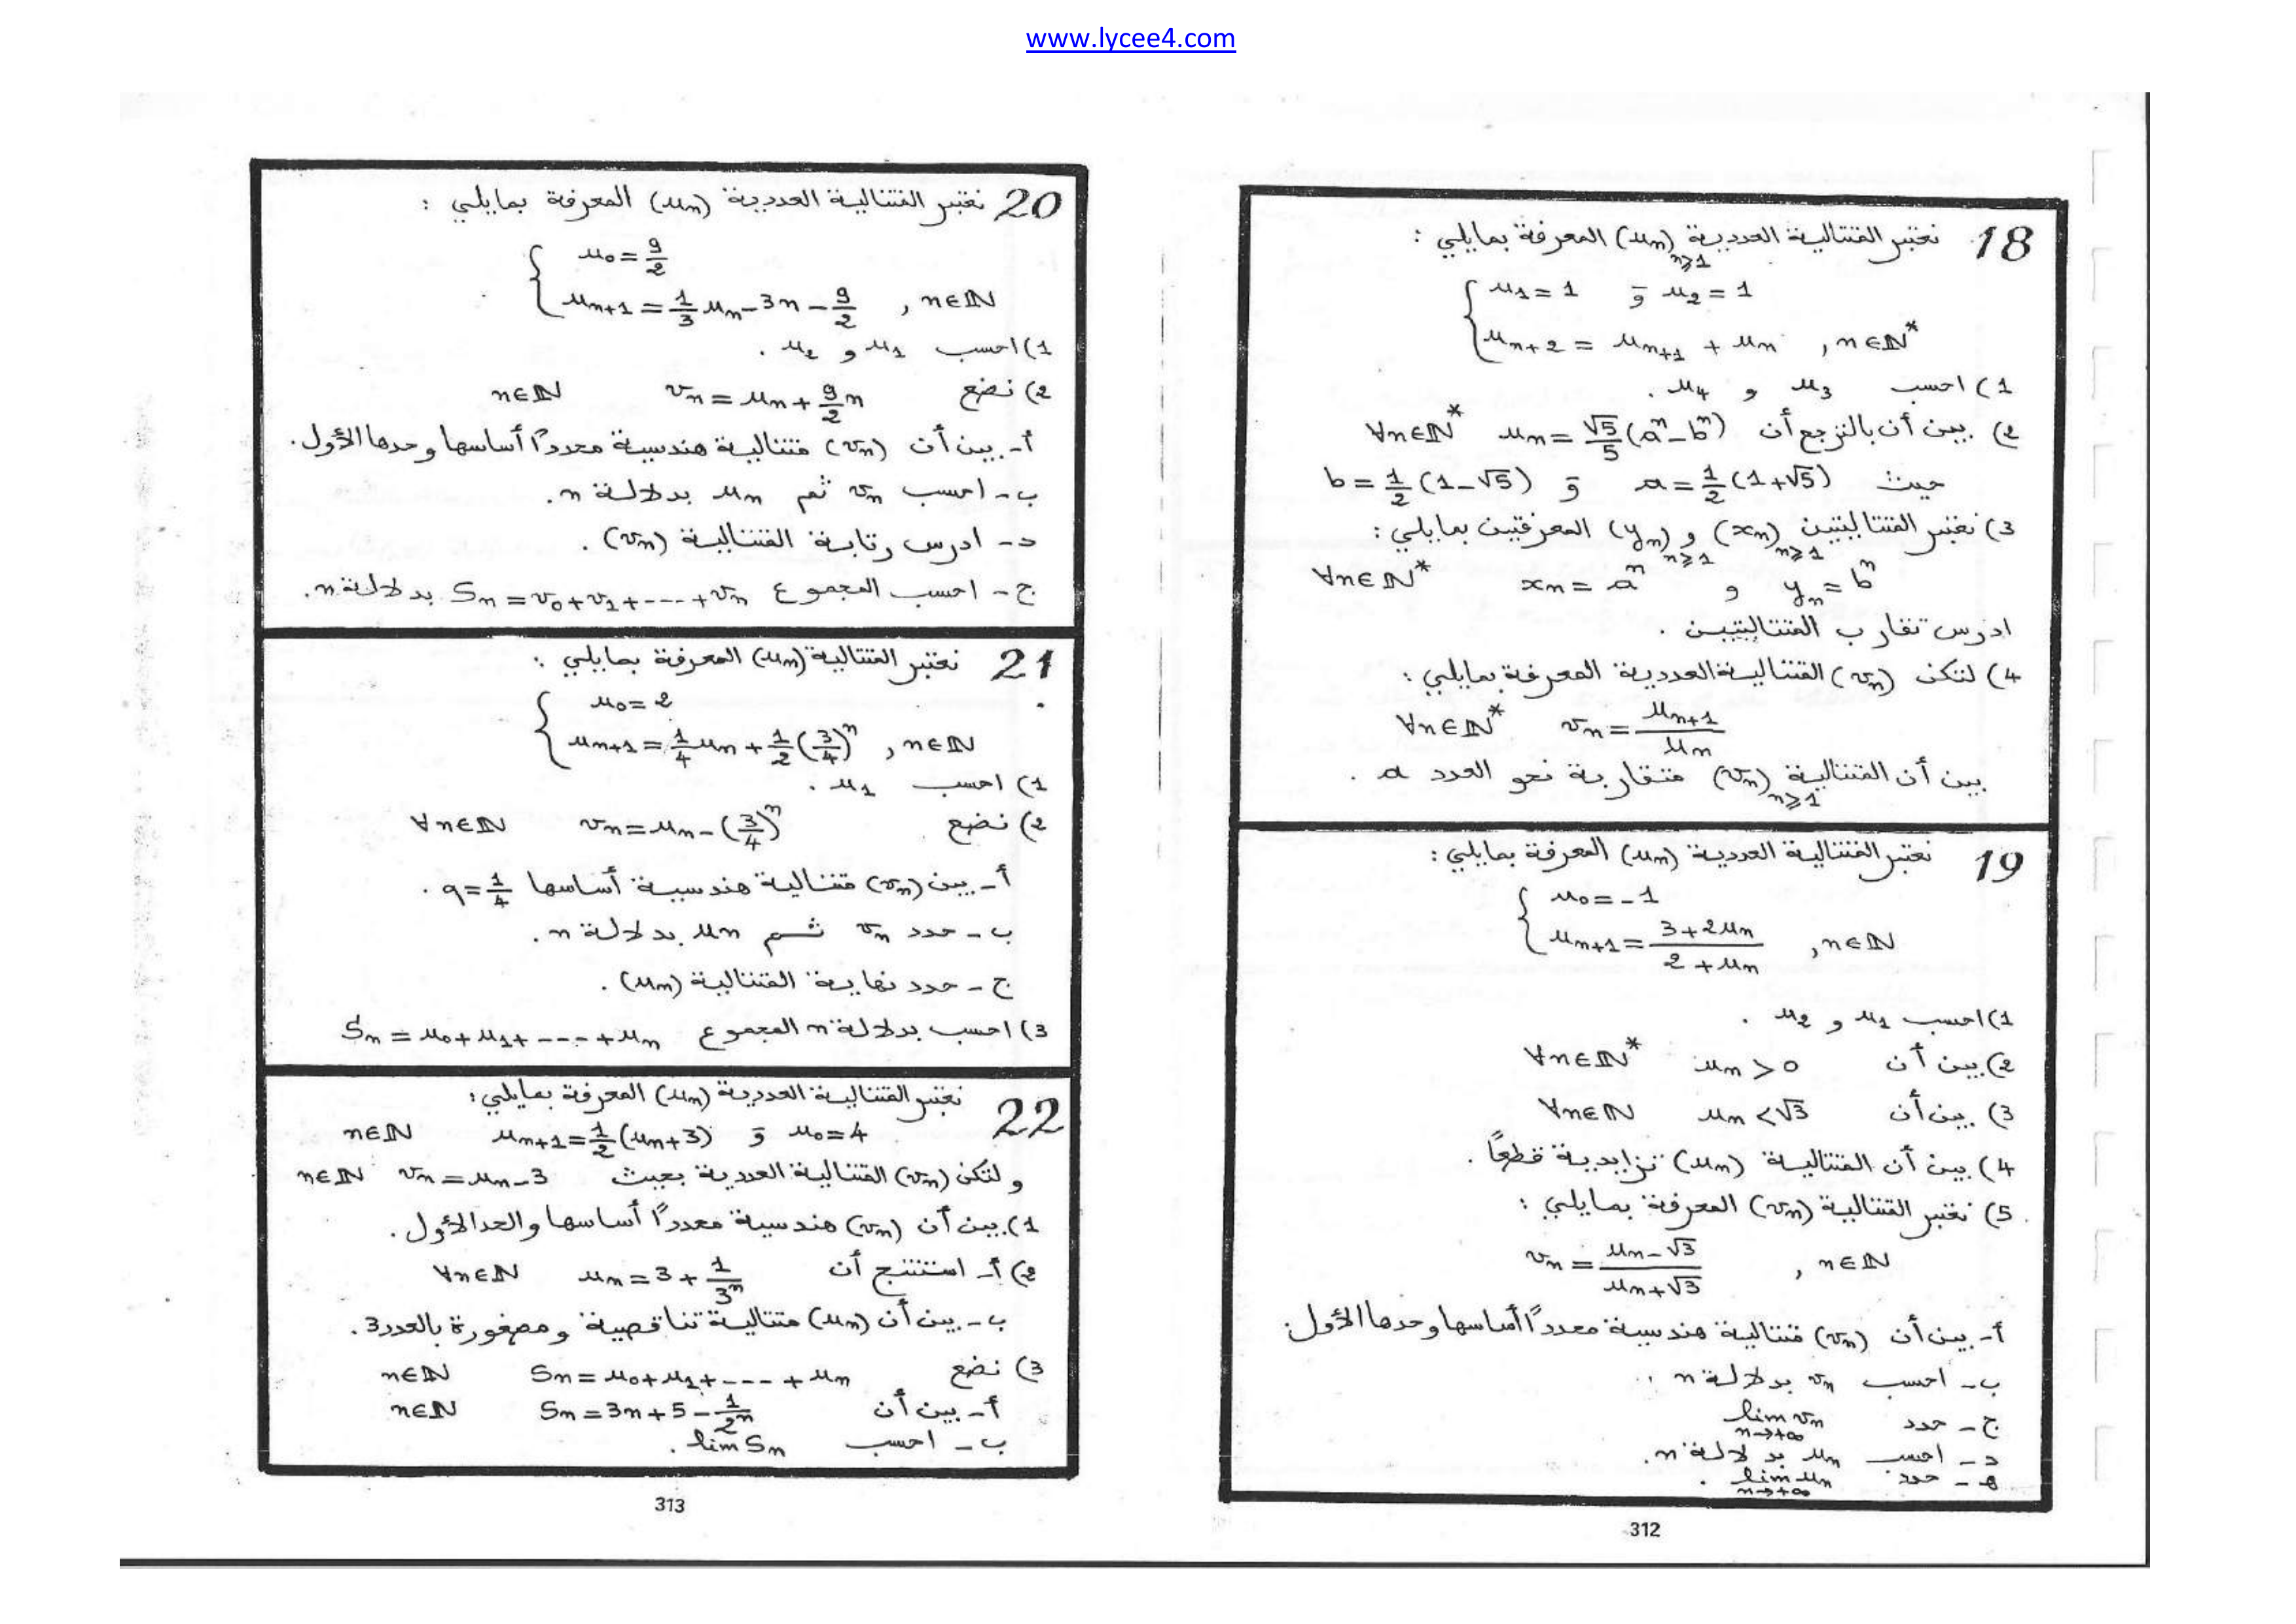 www.lycee4.com
18 نعتبر المتتالية العددية (u_n)_{n≥1} المعرفة بمايلي :
{ u_1 = 1 و u_2 = 1
u_{n+2} = u_{n+1} + u_n , n∈ℕ*
1) احسب u_3 و u_4 .
2) بين أن بالترجع أن u_n = √5/5 (a^n - b^n) ∀n∈ℕ*
حيث a = 1/2 (1+√5) و b = 1/2 (1-√5)
3) نعتبر المتتاليتين (x_n)_{n≥1} و (y_n)_{n≥1} المعرفتين بمايلي :
∀n∈ℕ* x_n = a^n و y_n = b^n
ادرس تقارب المتتاليتين .
4) لتكن (v_n) المتتالية العددية المعرفة بمايلي :
∀n∈ℕ* v_n = u_{n+1}/u_n
بين أن المتتالية (v_n)_{n≥1} متقاربة نحو العدد a .
19 نعتبر المتتالية العددية (u_n) المعرفة بمايلي :
{ u_0 = -1
u_{n+1} = (3+2u_n)/(2+u_n) , n∈ℕ
1) احسب u_1 و u_2 .
2) بين أن u_n > 0 ∀n∈ℕ*
3) بين أن u_n < √3 ∀n∈ℕ
4) بين أن المتتالية (u_n) تزايدية قطعًا .
5) نعتبر المتتالية (v_n) المعرفة بمايلي :
v_n = (u_n - √3)/(u_n + √3) , n∈ℕ
أ- بين أن (v_n) متتالية هندسية محددًا أساسها وحدها الأول.
ب- احسب v_n بدلالة n .
ج- حدد lim_{n→+∞} v_n
د- احسب u_n بدلالة n.
ه- حدد lim_{n→+∞} u_n .
312
20 نعتبر المتتالية العددية (u_n) المعرفة بمايلي :
{ u_0 = 9/2
u_{n+1} = 1/3 u_n - 3n - 9/2 , n∈ℕ
1) احسب u_1 و u_2 .
2) نضع v_n = u_n + 9/2 n n∈ℕ
أ- بين أن (v_n) متتالية هندسية محددًا أساسها وحدها الأول.
ب- احسب v_n ثم u_n بدلالة n.
د- ادرس رتابة المتتالية (v_n) .
ج- احسب المجموع S_n = v_0+v_1+----+v_n بدلالة n.
21 نعتبر المتتالية (u_n) المعرفة بمايلي :
{ u_0 = 2
u_{n+1} = 1/4 u_n + 1/2 (3/4)^n , n∈ℕ
1) احسب u_1 .
2) نضع v_n = u_n - (3/4)^n ∀n∈ℕ
أ- بين (v_n) متتالية هندسية أساسها q = 1/4 .
ب- حدد v_n ثم u_n بدلالة n.
ج- حدد نهاية المتتالية (u_n) .
3) احسب بدلالة n المجموع S_n = u_0+u_1+----+u_n
22 نعتبر المتتالية العددية (u_n) المعرفة بمايلي :
u_0 = 4 و u_{n+1} = 1/2 (u_n+3) n∈ℕ
ولتكن (v_n) المتتالية العددية بحيث v_n = u_n - 3 n∈ℕ
1) بين أن (v_n) هندسية محددًا أساسها والحد الأول.
2) أ- استنتج أن u_n = 3 + 1/3^n ∀n∈ℕ
ب- بين أن (u_n) متتالية تناقصية ومصغورة بالعدد 3.
3) نضع S_n = u_0+u_1+---+u_n n∈ℕ
أ- بين أن S_n = 3n+5 - 1/2^n n∈ℕ
ب- احسب lim S_n .
313